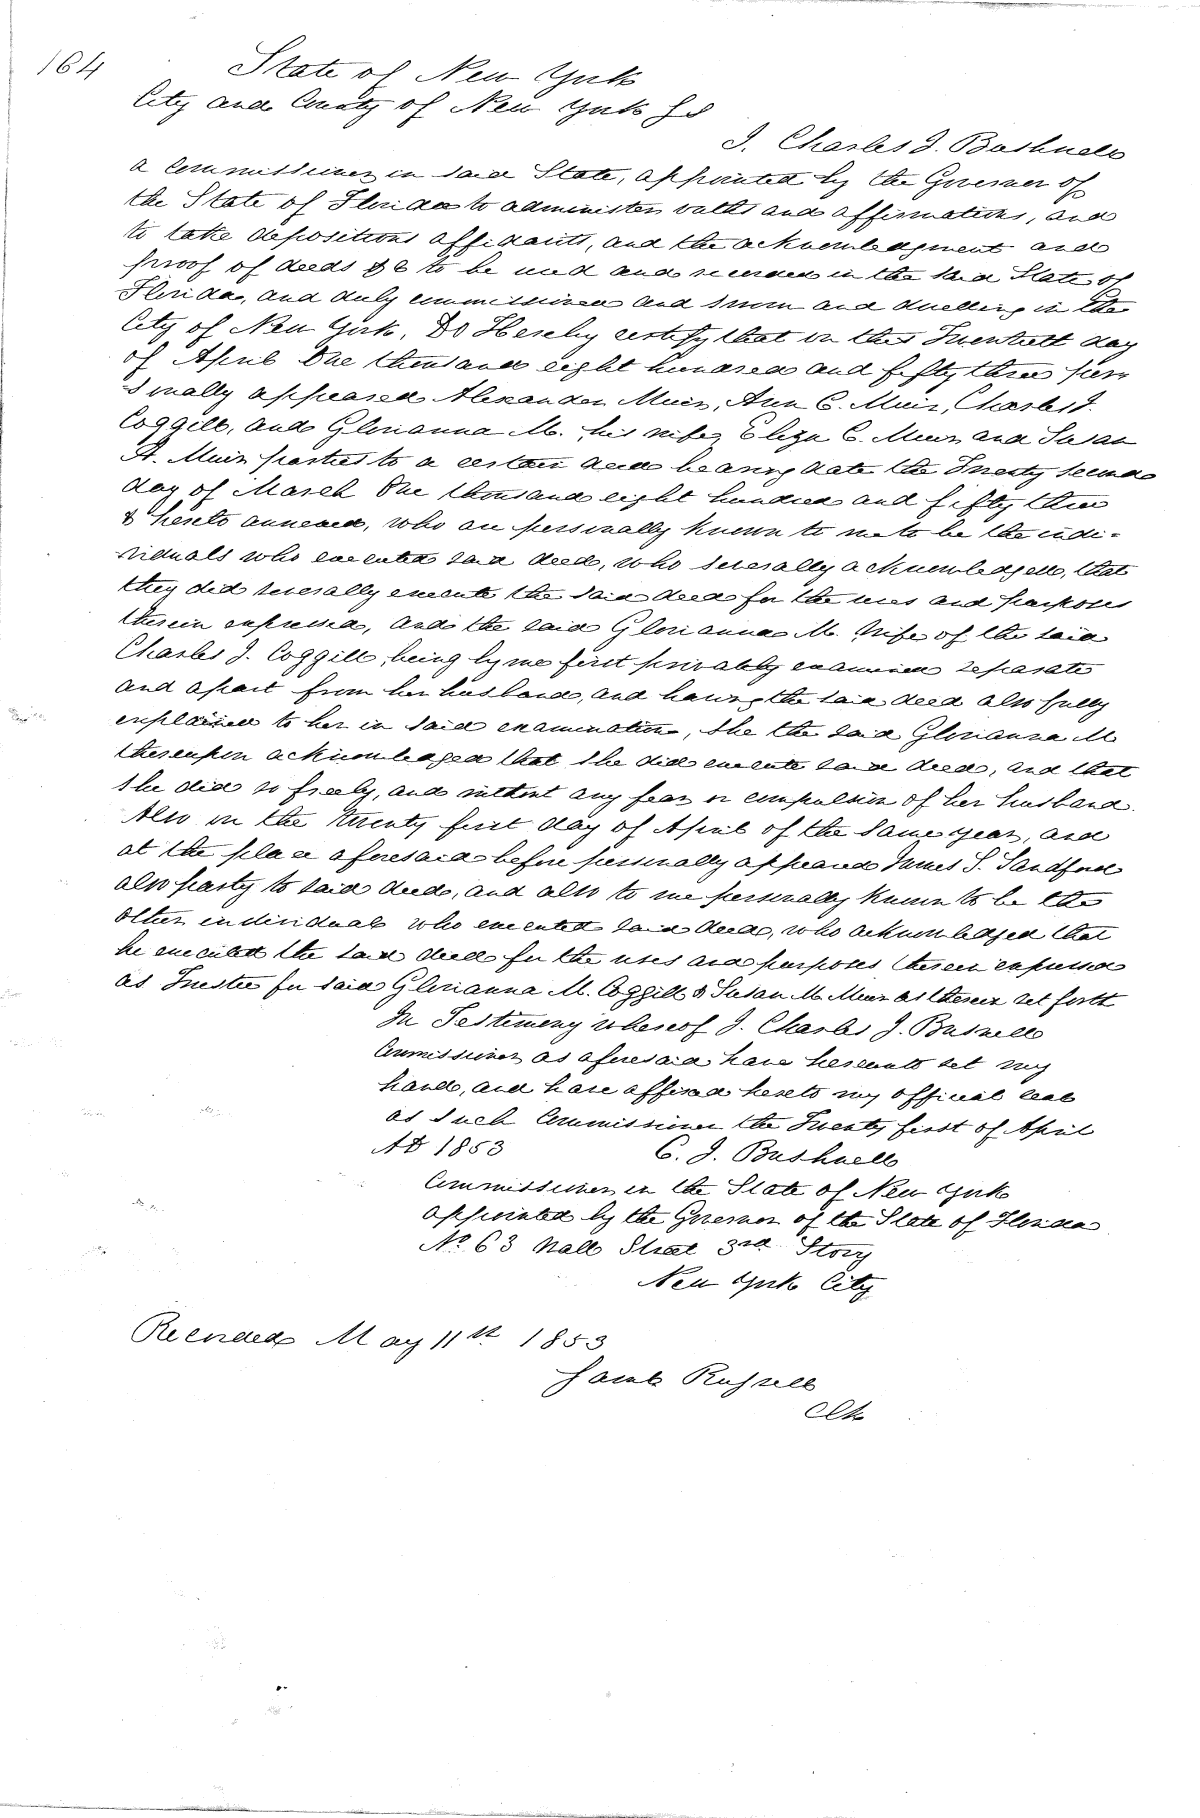 164
State of New York
City and County of New York SS
I. Charles J. Bushnell
a Commissioner in said State, appointed by the Governor of
the State of Florida to administer oaths and affirmations, and
to take depositions affidavits, and the acknowledgment and
proof of deeds &c to be used and recorded in the said State of
Florida, and duly commissioned and sworn and dwelling in the
City of New York, Do Hereby certify that on this Twentieth day
of April One thousand eight hundred and fifty three per
sonally appeared Alexander Muir, Ann C. Muir, Charles J.
Coggill, and Glorianna M. his wife, Eliza C. Muir and Susan
A. Muir parties to a certain deed bearing date the Twenty second
day of March One thousand eight hundred and fifty three
& hereto annexed, who are personally known to me to be the indi-
viduals who executed said deed, who severally acknowledged, that
they did severally execute the said deed for the uses and purposes
therein expressed, and the said Glorianna M. Wife of the said
Charles J. Coggill, being by me first privately examined separate
and apart from her husband, and having the said deed also fully
explained to her in said examination, she the said Glorianna M
thereupon acknowledged that she did execute said deed, and that
she did so freely, and without any fear or compulsion of her husband.
Also on the Twenty first day of April of the same year, and
at the place aforesaid before personally appeared James S. Sandford
also party to said deed, and also to me personally known to be the
other individual who executed said deed, who acknowledged that
he executed the said deed for the uses and purposes therein expressed
as Trustee for said Glorianna M. Coggill & Susan M. Muir as therein set forth
In Testimony whereof I. Charles J. Bushnell
Commissioner as aforesaid have hereunto set my
hand, and have affixed hereto my official seal
as such Commissioner the Twenty first of April
AD 1853 C. J. Bushnell
Commissioner in the State of New York
appointed by the Governor of the State of Florida
No 63 Wall Street 3rd Story
New York City
Recorded May 11th 1853
Saml Russell
Clk